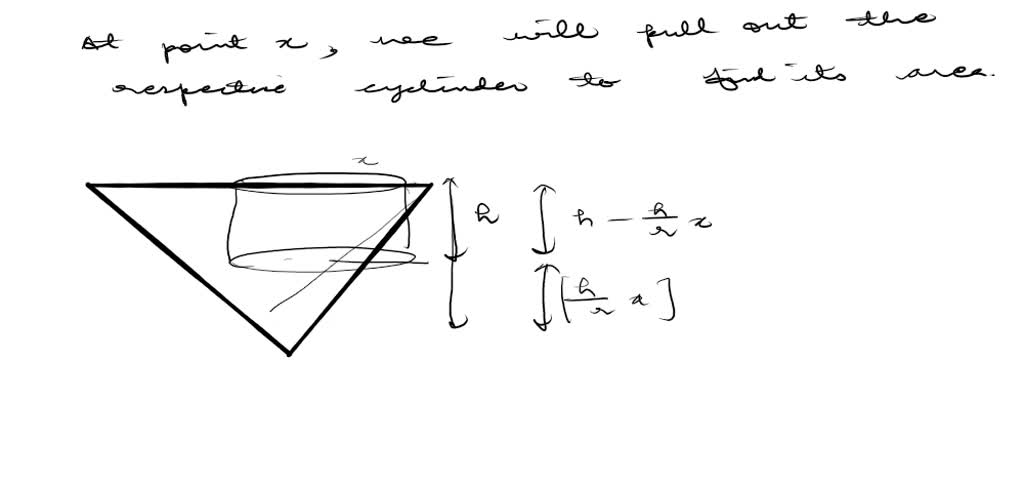 At point x, we will pull out the
respective cylinder to find its area.
x
h
h - h/r x
[h/r x]